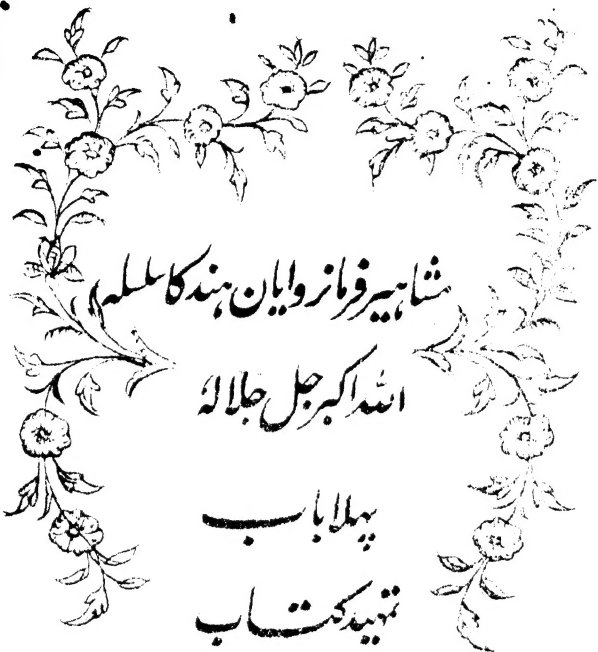 مشاہیر فرمانروایان ہند کا سلسلہ
اللہ اکبر جل جلالہٗ
پہلا باب
تمہید کتاب